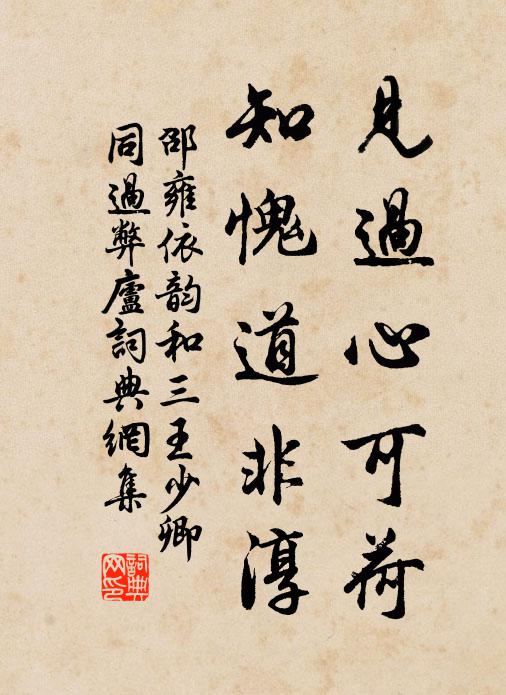 見過心可荷
知愧道非淳
邵雍依韵和三王少卿
同過弊廬詞典網集
詞典網印